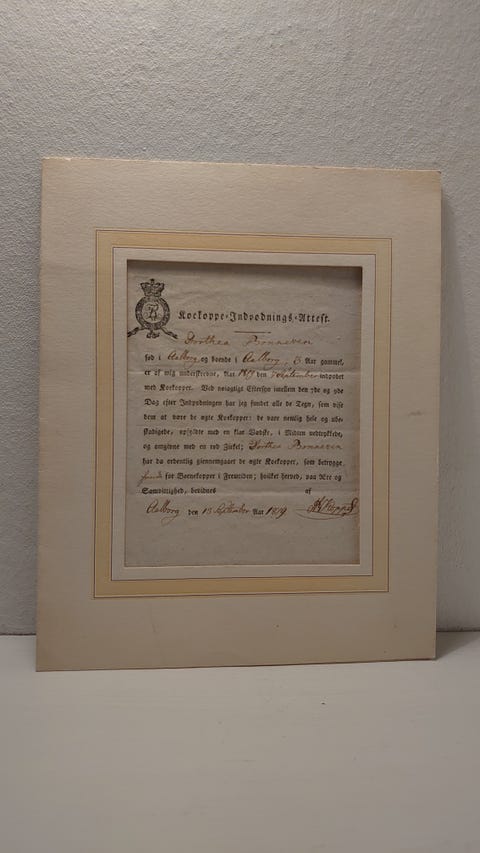 Koekoppe-Indpodnings-Attest.
Dorthea Bonneven
fød i Aalborg og boende i Aalborg, Aar gammel,
er af mig understrevne, Aar 1819 den September indpodet
med Koekopper. Ved nøiagtigt Eftersyn imellem den 7de og 9de
Dag efter Indpodningen har jeg fundet alle de Tegn, som vise
dem at være de ægte Koekopper: de vare nemlig hele og ube-
skadigede, opfyldte med en klar Vædske, i Midten nedtrykkede,
og omgivne med en rød Zirkel; Dorthea Bonneven
har da ordentlig giennemgaaet de ægte Koekopper, som betrygge
for Børnekopper i Fremtiden; hvilket herved, paa Ære og
Samvittighed, bevidnes af
Aalborg den 15 September Aar 1819